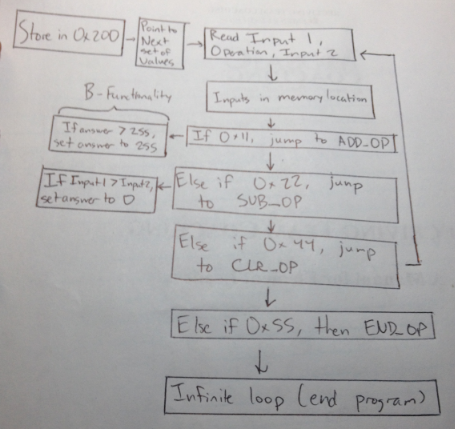 Store in 0x200
Point to
Next
set of
Values
Read Input 1,
Operation, Input 2
Inputs in memory location
B-Functionality
If answer > 255,
set answer to 255
If 0x11, jump to ADD_OP
If Input1 > Input2,
set answer to 0
Else if 0x22, jump
to SUB_OP
Else if 0x44, jump
to CLR_OP
Else if 0x55, then END_OP
Infinite loop (end program)